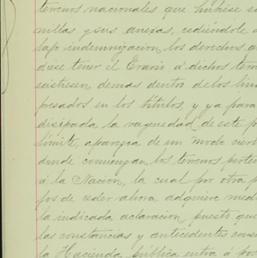 terrenos nacionales que hubiese s
millas y sus anexas, cediéndole a
bajo indemnizacion, los derechos q
diese tener el Erario á dichos terre
esistiesen demas dentro de los lim
pesados en los títulos, y ya para
disipada la vaguedad de este p
límite, aparezca de un modo cier
donde comienzan los terrenos perten
á la Nacion, la cual por otra p
pos de esder ahora adquiere med
la indicada aclaracion, puesto que
las constancias y antecedentes cons
la Hacienda pública entra á pos